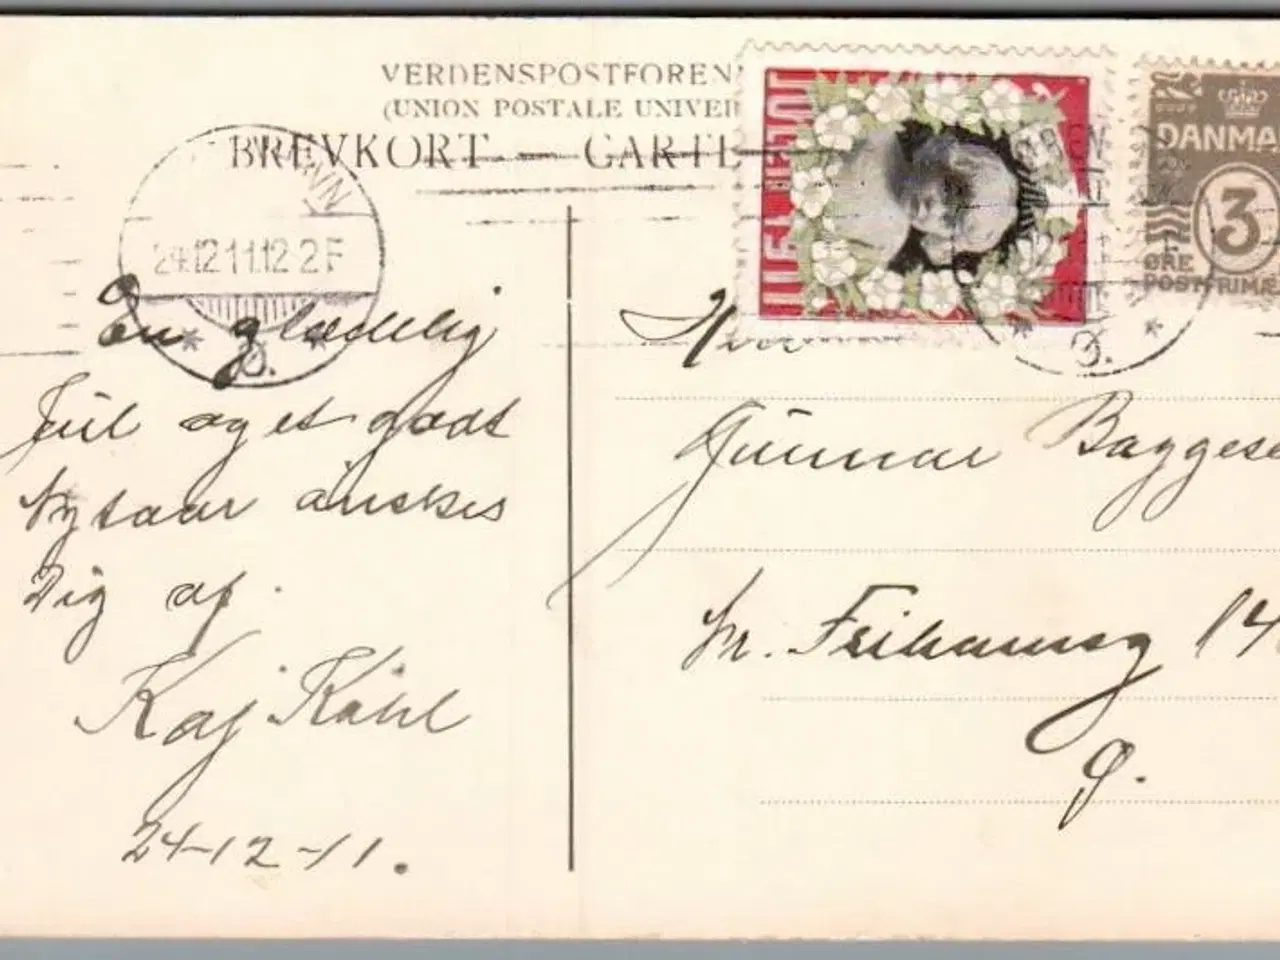 VERDENSPOSTFOREN
(UNION POSTALE UNIVER
BREVKORT — CARTE
24.12.11.12 2 F
Ø.
JULEN 1911
DANMA
3
ØRE
POSTFRIMÆ
Ø.
En glædelig
Jul og et godt
Nytaar ønskes
Dig af
Kaj Kühl
24-12-11.
Gunnar Baggese
hr. Frihavnsg 14
Ø.